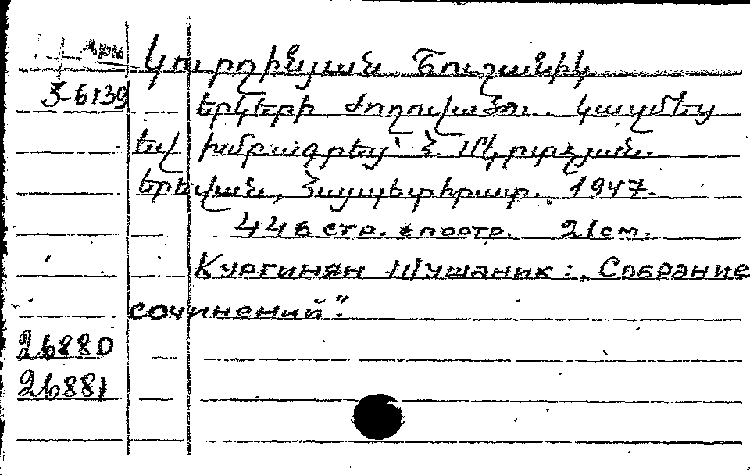 Կուրղինյան Շուշանիկ
3-6139 Երկերի ժողովածու. Կազմեց
եվ խմբագրեց՝ Հ. Մկրտչյան.
Երեվան, Հայպետհրատ. 1947.
446 стр. портр. 21см.
Кургинян Шушаник: „Собрание
сочинений".
26880
26881